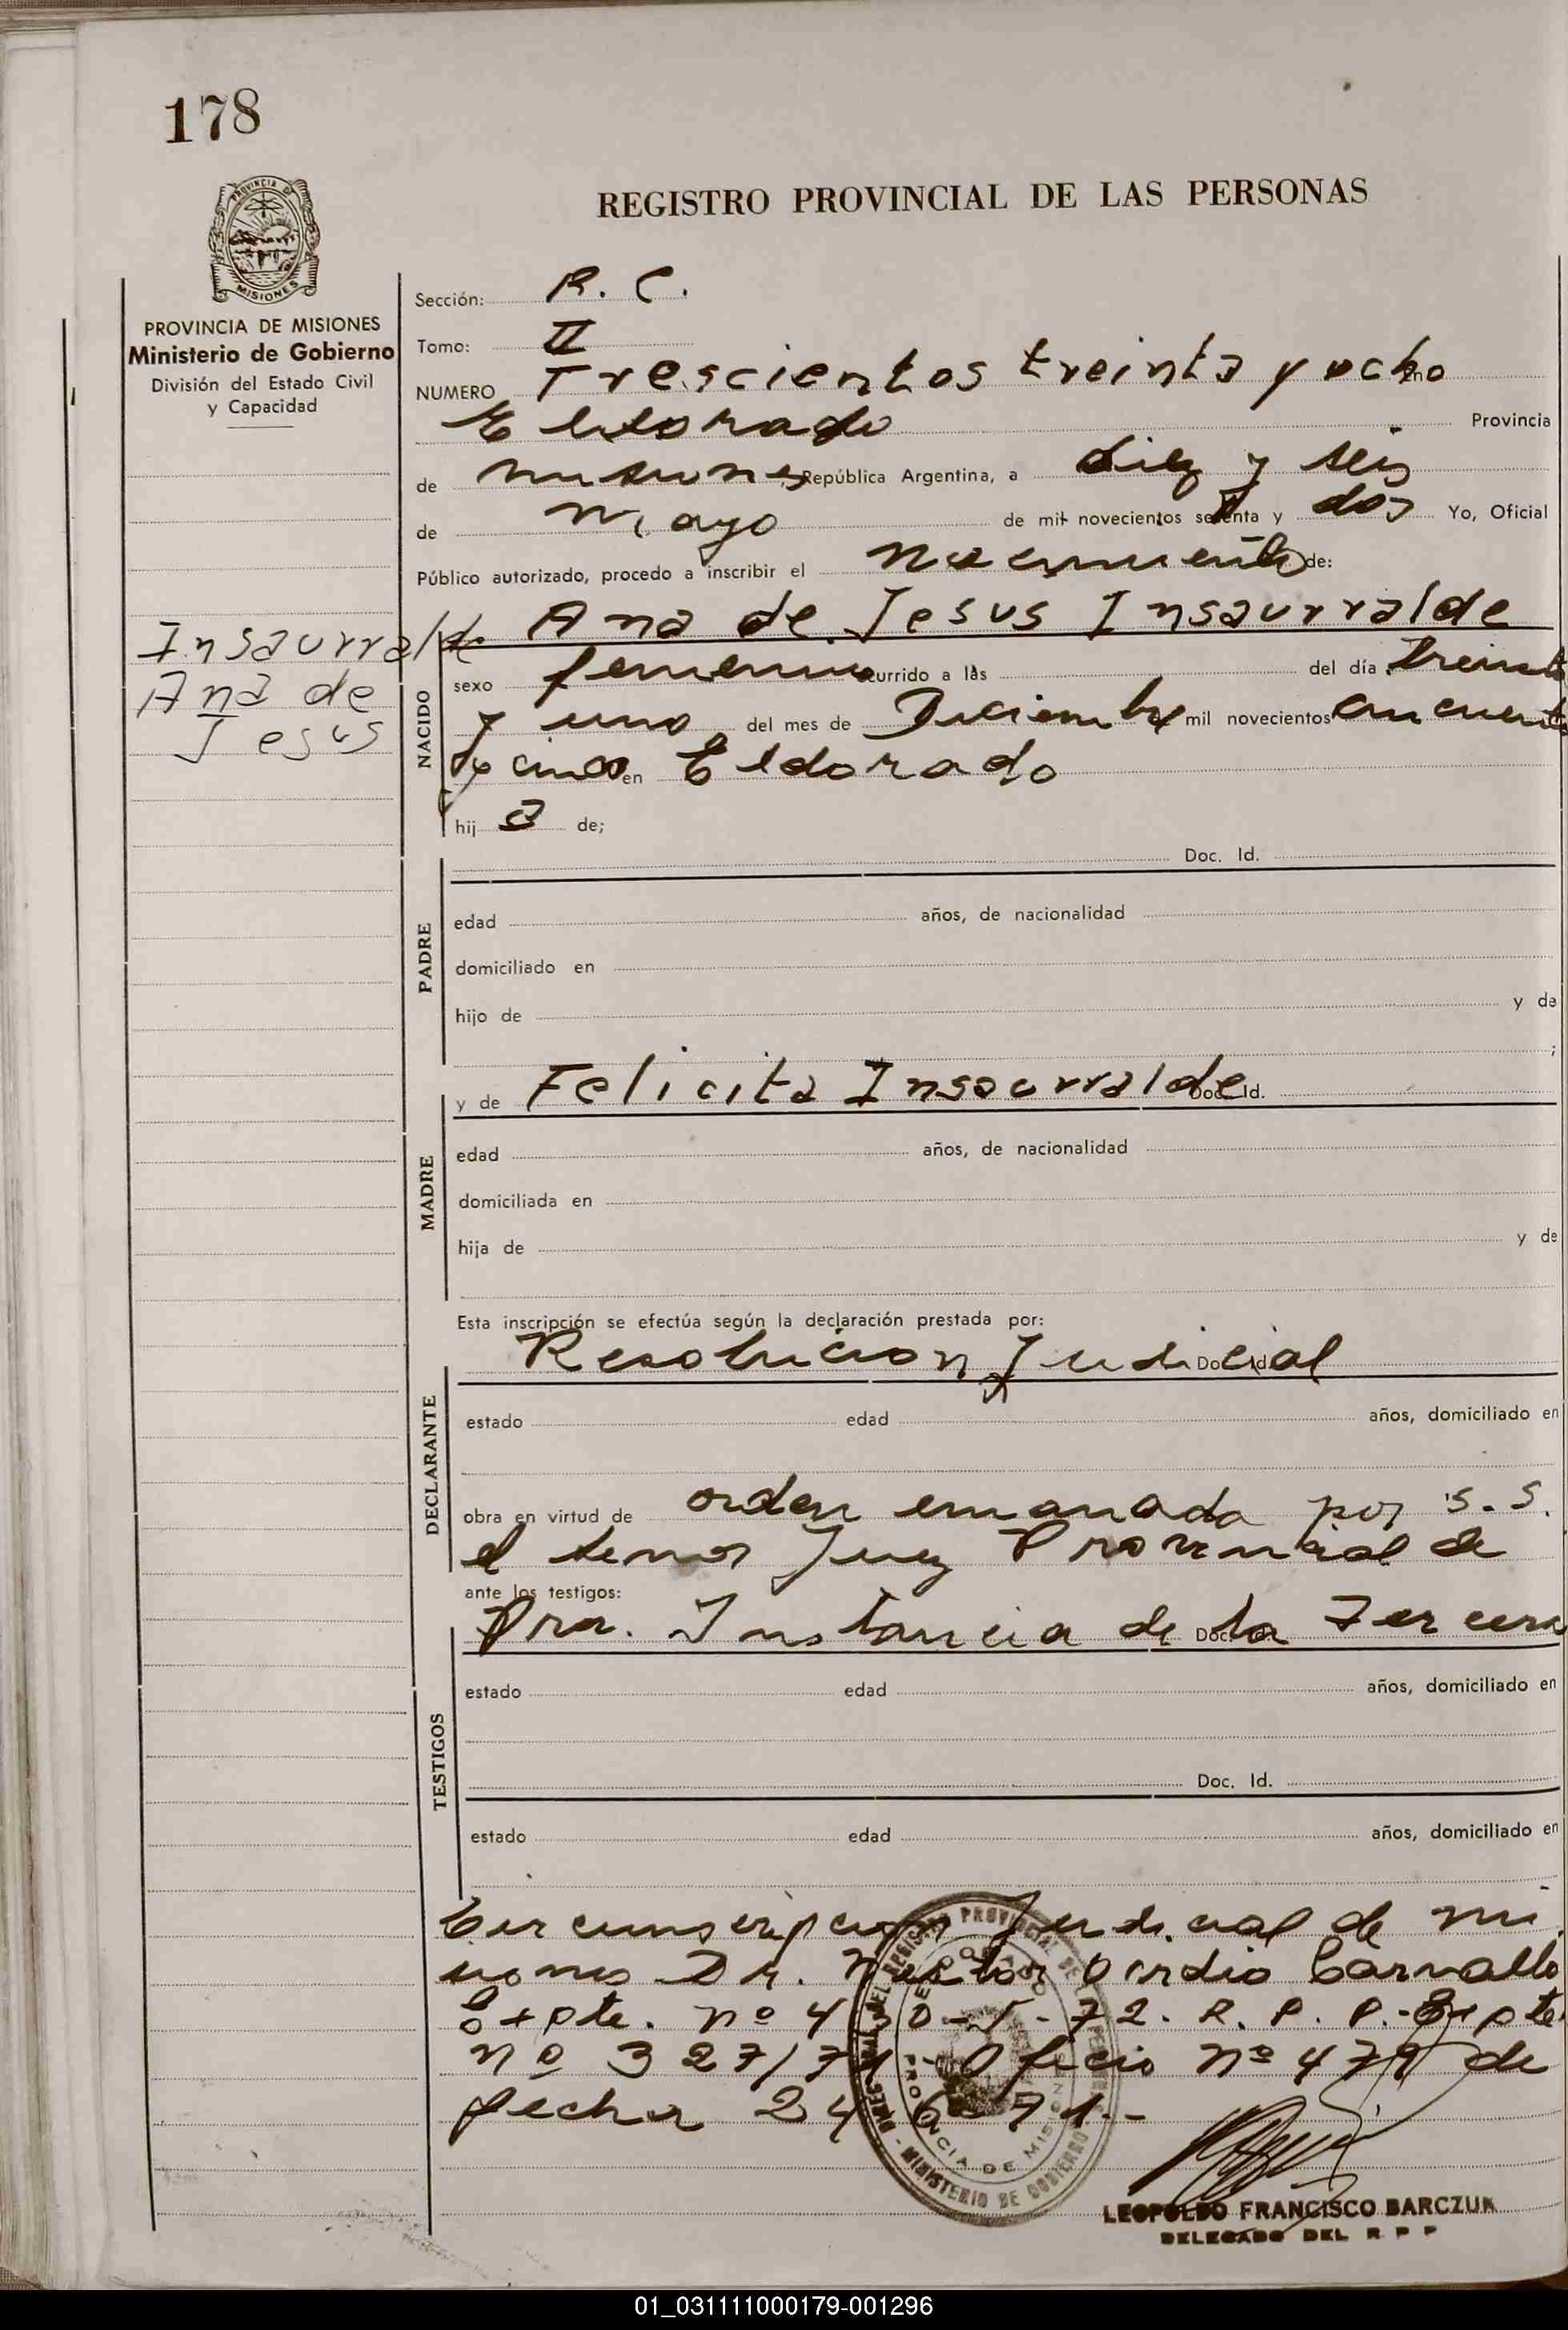 178
PROVINCIA DE
MISIONES
REGISTRO PROVINCIAL DE LAS PERSONAS
PROVINCIA DE MISIONES
Ministerio de Gobierno
División del Estado Civil
y Capacidad
Insaurralde
Ana de
Jesus
Sección: R. C.
Tomo: II
NUMERO Trescientos treinta y ocho En
Eldorado Provincia
de Misiones, República Argentina, a diez y seis
de Mayo de mil novecientos setenta y dos Yo, Oficial
Público autorizado, procedo a inscribir el nacimiento de:
Ana de Jesus Insaurralde
NACIDO
sexo femenino ocurrido a las del día treinta
y uno del mes de Diciembre mil novecientos cincuenta
y cinco en Eldorado
hij a de;
Doc. Id.
PADRE
edad años, de nacionalidad
domiciliado en
hijo de y de
;
y de Felicita Insaurralde Doc. Id.
MADRE
edad años, de nacionalidad
domiciliada en
hija de y de
Esta inscripción se efectúa según la declaración prestada por:
Resolucion Judicial Doc. Id.
DECLARANTE
estado edad años, domiciliado en
obra en virtud de orden emanada por S. S.
el señor Juez Provincial de
ante los testigos:
Pra. Instancia de la Tercera Doc. Id.
TESTIGOS
estado edad años, domiciliado en
Doc. Id.
estado edad años, domiciliado en
Circunscripcion Judicial de Mi
siones Dr. Nestor Carvallo
Expte. nº 72. R. P. P. Expte
nº 327/71 Oficio nº 479 de
fecha 24 6-71.-
REGISTRO PROVINCIAL DE
PROVINCIA DE MISIONES
MINISTERIO DE GOBIERNO
LEOPOLDO FRANCISCO BARCZUK
DELEGADO DEL R P P
01_031111000179-001296